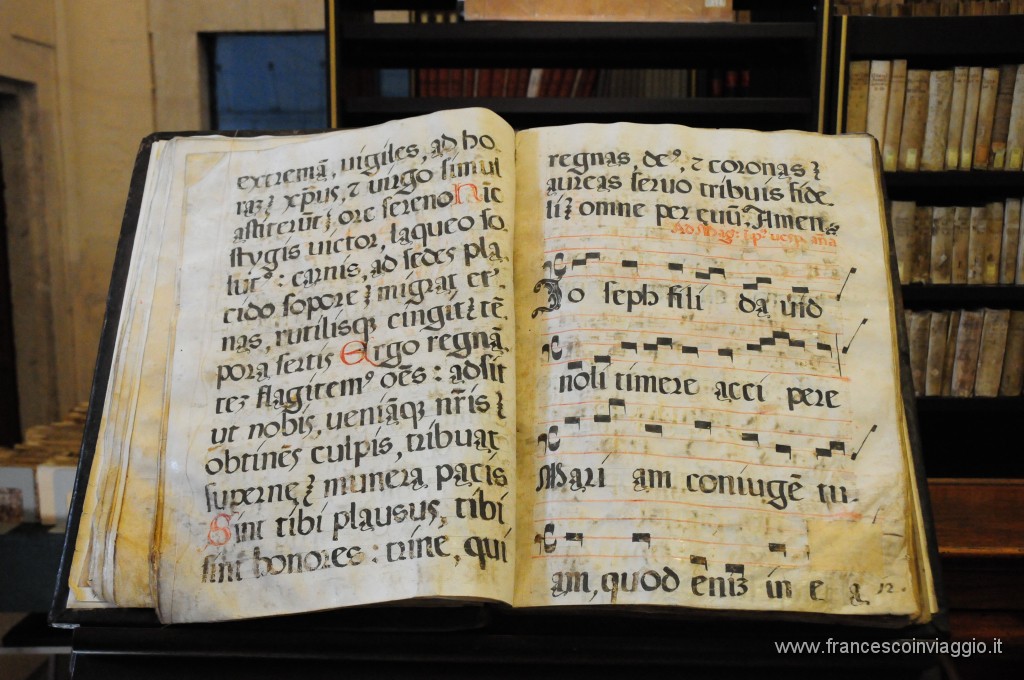 extremã, vigiles, ad ho.
raꝫ xp̃us, ⁊ virgo simul
astiterũt ꝫ, ore sereno Hĩc
stygis victor, laqueo so.
lutꝰ: carnis, ad sedes pla.
cido sopore ꝫ migrat etꝰ.
nas, rutilisqꝫ cingit ꝫ tẽ.
pora sertis Ergo regnã.
teꝫ flagitemꝰ oẽs: adsit
ut nobis, veniãqꝫ nr̃is ꝫ
obtinẽs culpis, tribuat
supernę ꝫ munera pacis
Sint tibi plausus, tibi
sint honores: trine, qui
regnas, deꝰ, ⁊ coronas ꝫ
aureas servo tribuis fide.
li ꝫ omne per ęvũ, Amen.
Ad Mag: ꝫ pꝰ vesp. aña
Jo seph fili da vid
noli timere acci pere
Mari am coniugẽ tu.
am, quod enĩꝫ in e a
12.
www.francescoinviaggio.it